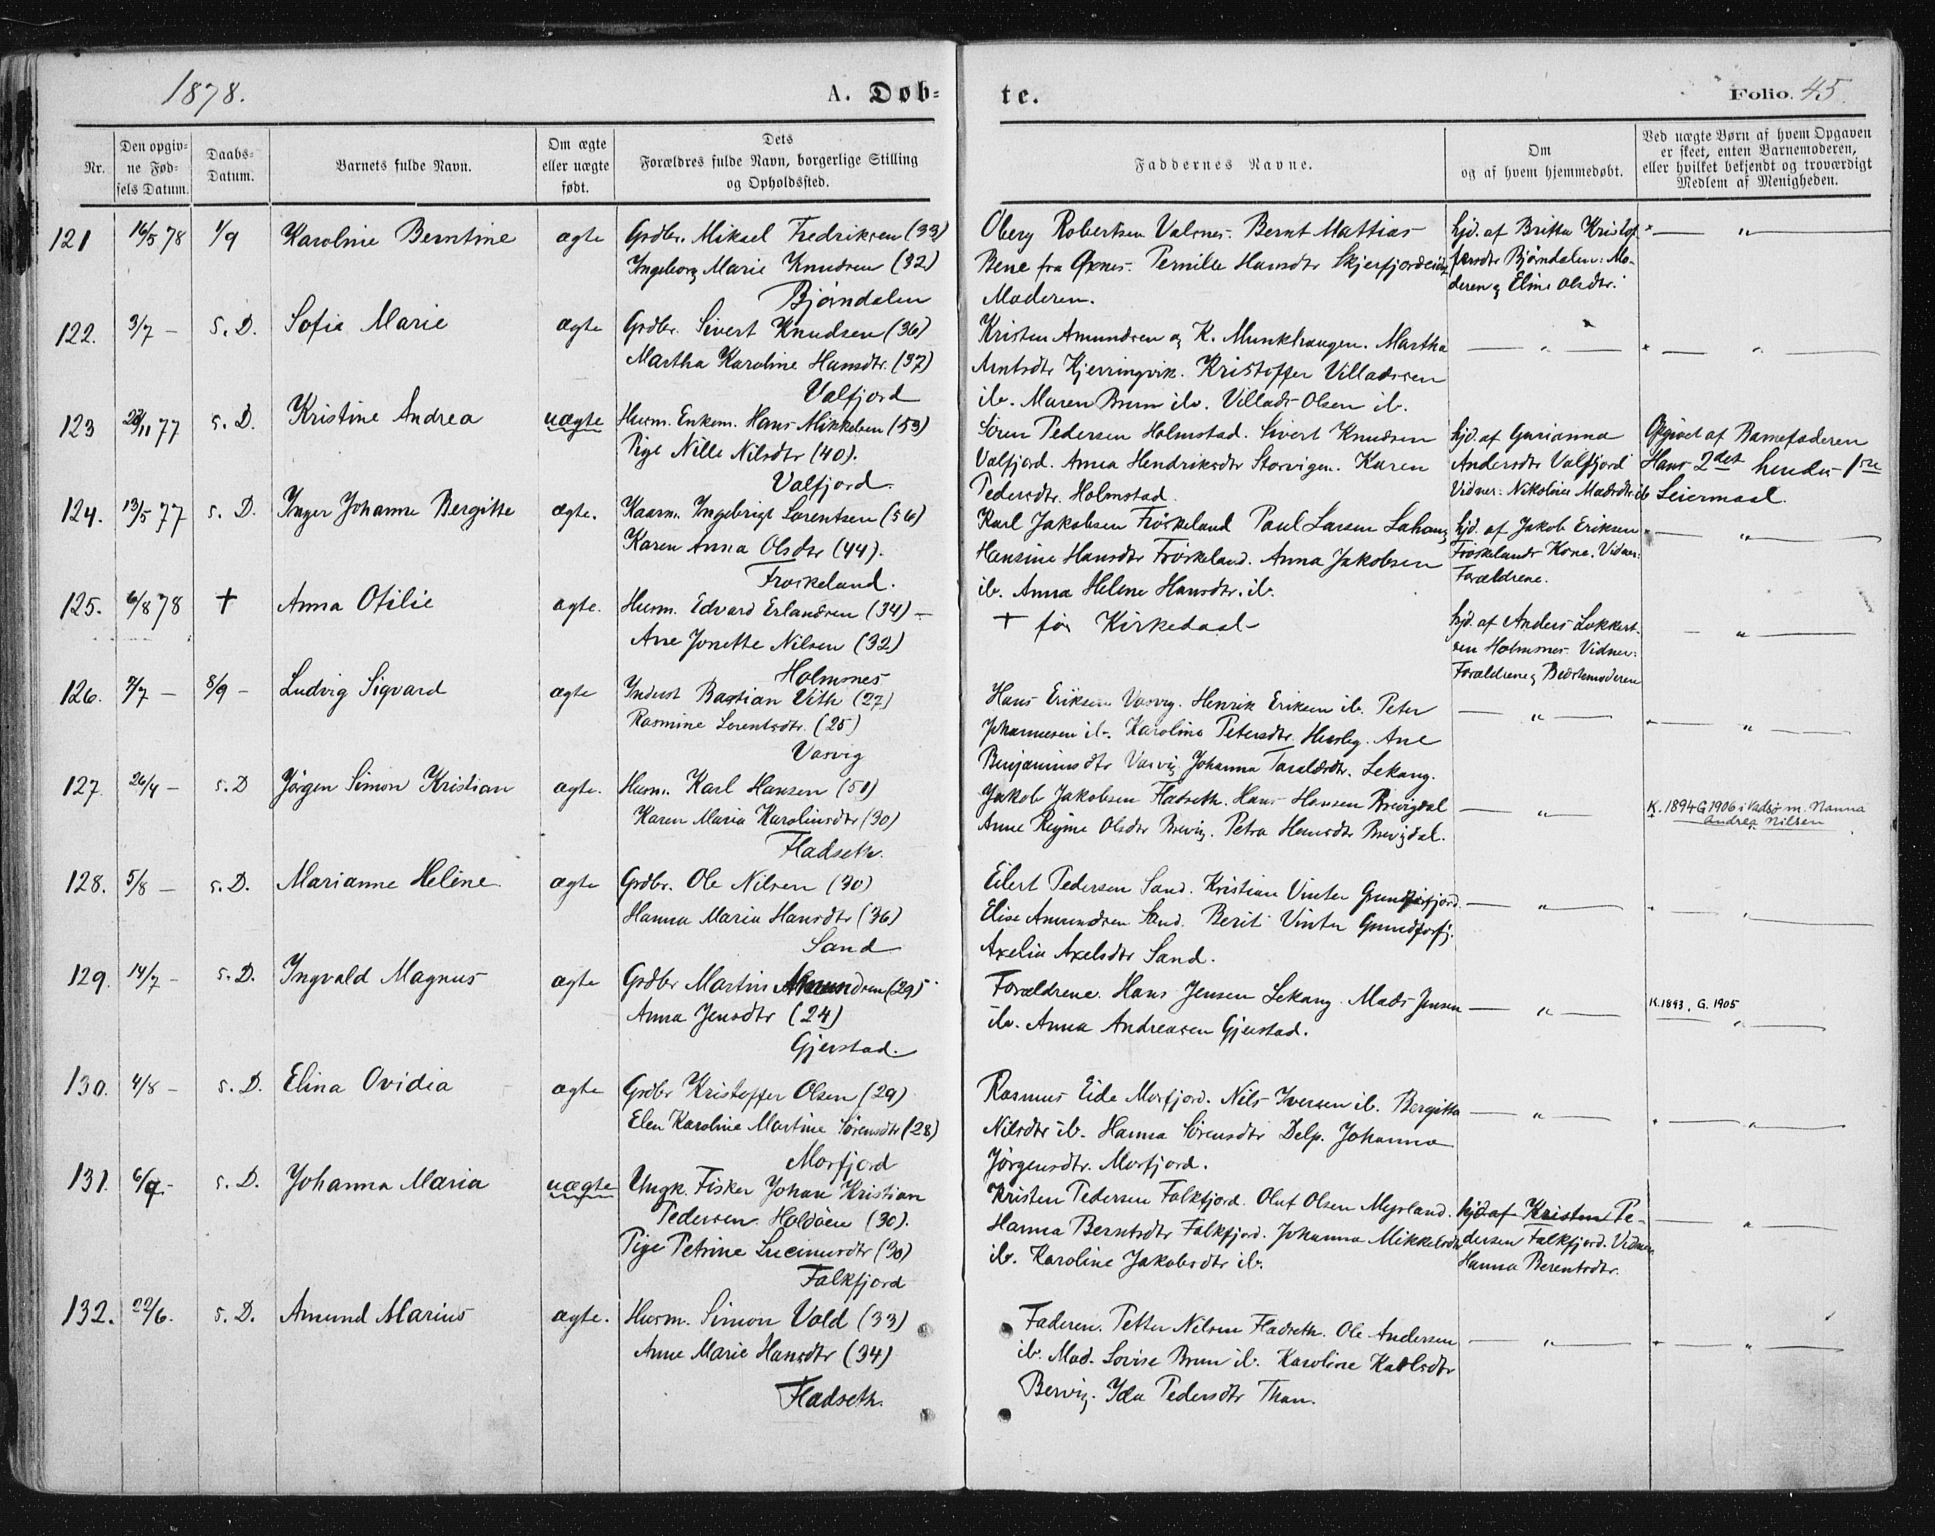 1878.
A. Døb-
te.
Folio. 45.
Nr.
Den opgiv-
ne Fød-
sels Datum.
Daabs-
Datum.
Barnets fulde Navn.
Om ægte
eller uægte
født.
Dets
Forældres fulde Navn, borgerlige Stilling
og Opholdssted.
Faddernes Navne.
Om
og af hvem hjemmedøbt.
Ved uægte Børn af hvem Opgaven
er skeet, enten Barnemoderen,
eller hvilket bekjendt og troværdigt
Medlem af Menigheden.
121 16/5 78 1/9 Karoline Berntine ægte Grdbr. Mikael Fredriksen (33)
Ingeborg Marie Knudsen (32)
Bjørndalen
Oberg Robertsen Valsnes. Bernt Mattias
Bene fra Øxnes. Pernille Hansdtr
Moderen.
hjd. af Britta Kristof
fersdtr Bjørndalen: Mo-
deren og Eline Olsdtr.
122. 3/7 — s. D. Sofie Marie ægte Grdbr. Sivert Knudsen (36)
Martha Karoline Hansdtr. (37)
Valfjord
Kristen Amundsen og K. Munkhaugen. Martha
Arntsdtr Kjerringvik. Kristoffer Villadssen
ib. Maren Brun ib. Villads Olsen ib.
123 28/11 77 s. D. Kristine Andrea uægte Husm. Enkem. Hans Mikkelsen (53)
Pige Nille Nilsdtr (40).
Valfjord.
Søren Pedersen Holmstad. Sivert Knudsen
Valfjord. Anna Hendriksdtr Storvigen. Karen
Pedersdtr. Holmstad.
hjd. af Gurianna
Andersdtr Valfjord
Vidner: Nikoline Madsdtr ib
Opgivet af Barnefaderen
Hans 2det hendes 1ste
Leiermaal.
124. 13/5 77 s. D. Inger Johanne Bergitte ægte. Kaarm. Ingebrigt Lorentsen (56)
Karen Anna Olsdtr (44).
Frøskeland.
Karl Jakobsen Frøskeland Paul Larsen
Hansine Hansdtr Frøskeland. Anna Jakobsen
ib. Anna Helene Hansdtr. ib.
hjd. af Jakob Eriksen
Frøskelands Kone. Vidner:
Forældrene.
125. 6/8 78 † Anna Otilie ægte. Husm. Edvard Erlandsen (34) —
Ane Jonette Nilsen (32)
Holmsnes
† før Kirkedaab
hjd. af Anders Lokkert-
sen Holmsnes. Vidner:
Forældrene og Bedstemoderen
126. 7/7 — 8/9 — Ludvig Sigvard ægte Inderst Bastian Vith (27)
Rasmine Lorentsdtr. (25)
Vasvig
Hans Eriksen Vasvig. Henrik Eriksen ib. Peter
Johannesen ib. Karoline Petersdtr. Ane
Benjaminsdtr Vasvig. Johanna Taraldsdtr. Lekang.
127. 26/4 — s. D Jørgen Simon Kristian ægte. Husm. Karl Hansen (50)
Karen Maria Karolinsdtr (30)
Fladseth.
Jakob Jakobsen Fladseth. Hans Hansen Brevigdal
Anne Regine Olsdtr Brevig. Petra Hansdtr Brevigdal.
K. 1894 G 1906 i Vadsø m. Nanna
Andrea Nilsen
128. 5/8 — s. D. Marianne Heline. ægte Grdbr. Ole Nilsen (30)
Hanna Maria Hansdtr (36)
Sand
Eilert Pedersen Sand. Kristian Vinter Grundforfjord.
Elise Amundsen Sand. Berit Vinter Grundforfj.
Axelia Axelsdtr Sand.
129. 14/7 — s. D. Ingvald Magnus ægte Grdbr Martin Amundsen (29)
Anna Jensdtr (24)
Gjerstad.
Forældrene. Hans Jensen Lekang. Mads Jensen
ib. Anna Andreasen Gjerstad.
K. 1893. G. 1905
130. 4/8 — s. D. Elina Ovidia ægte Grdbr Kristoffer Olsen (29)
Elen Karoline Martine Sørensdtr (28)
Morfjord
Rasmus Eide Morfjord. Nils Iversen ib. Bergitta
Nilsdtr ib. Hanna Sørensdtr Delp. Johanna
Jørgensdtr. Morfjord.
131. 6/9 — s. D. Johanna Maria uægte Ungk. Fisker Johan Kristian
Pedersen Holdøen (30).
Pige Petrine Lucinusdtr (30)
Falkfjord
Kristen Pedersen Falkfjord. Oluf Olsen Myrland.
Hanna Berntsdtr Falkfjord. Johanna Mikkelsdtr
ib. Karoline Jakobsdtr ib.
hjd af Kristen Pe-
dersen Falkfjord. Vidner
Hanna Berentsdtr.
132. 22/6. s. D. Amund Marius ægte. Husm. Simon Vold (33)
Anne Marie Hansdtr (34)
Fladseth.
Faderen. Petter Nilsen Fladseth. Ole Andersen
ib. Mad. Lovise Brun ib. Karoline Karlsdtr
Bervig. Ida Pedersdtr Then.